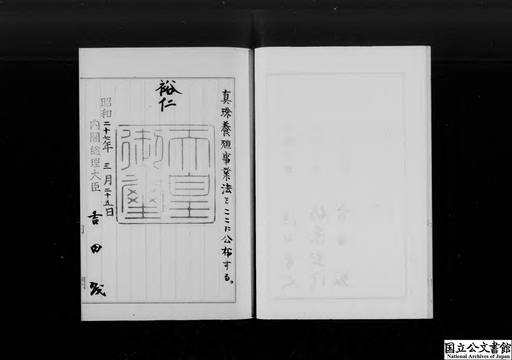 真珠養殖事業法をここに公布する。
裕仁
天皇御璽
昭和二十七年三月二十五日
内閣総理大臣 吉田茂
国立公文書館
National Archives of Japan